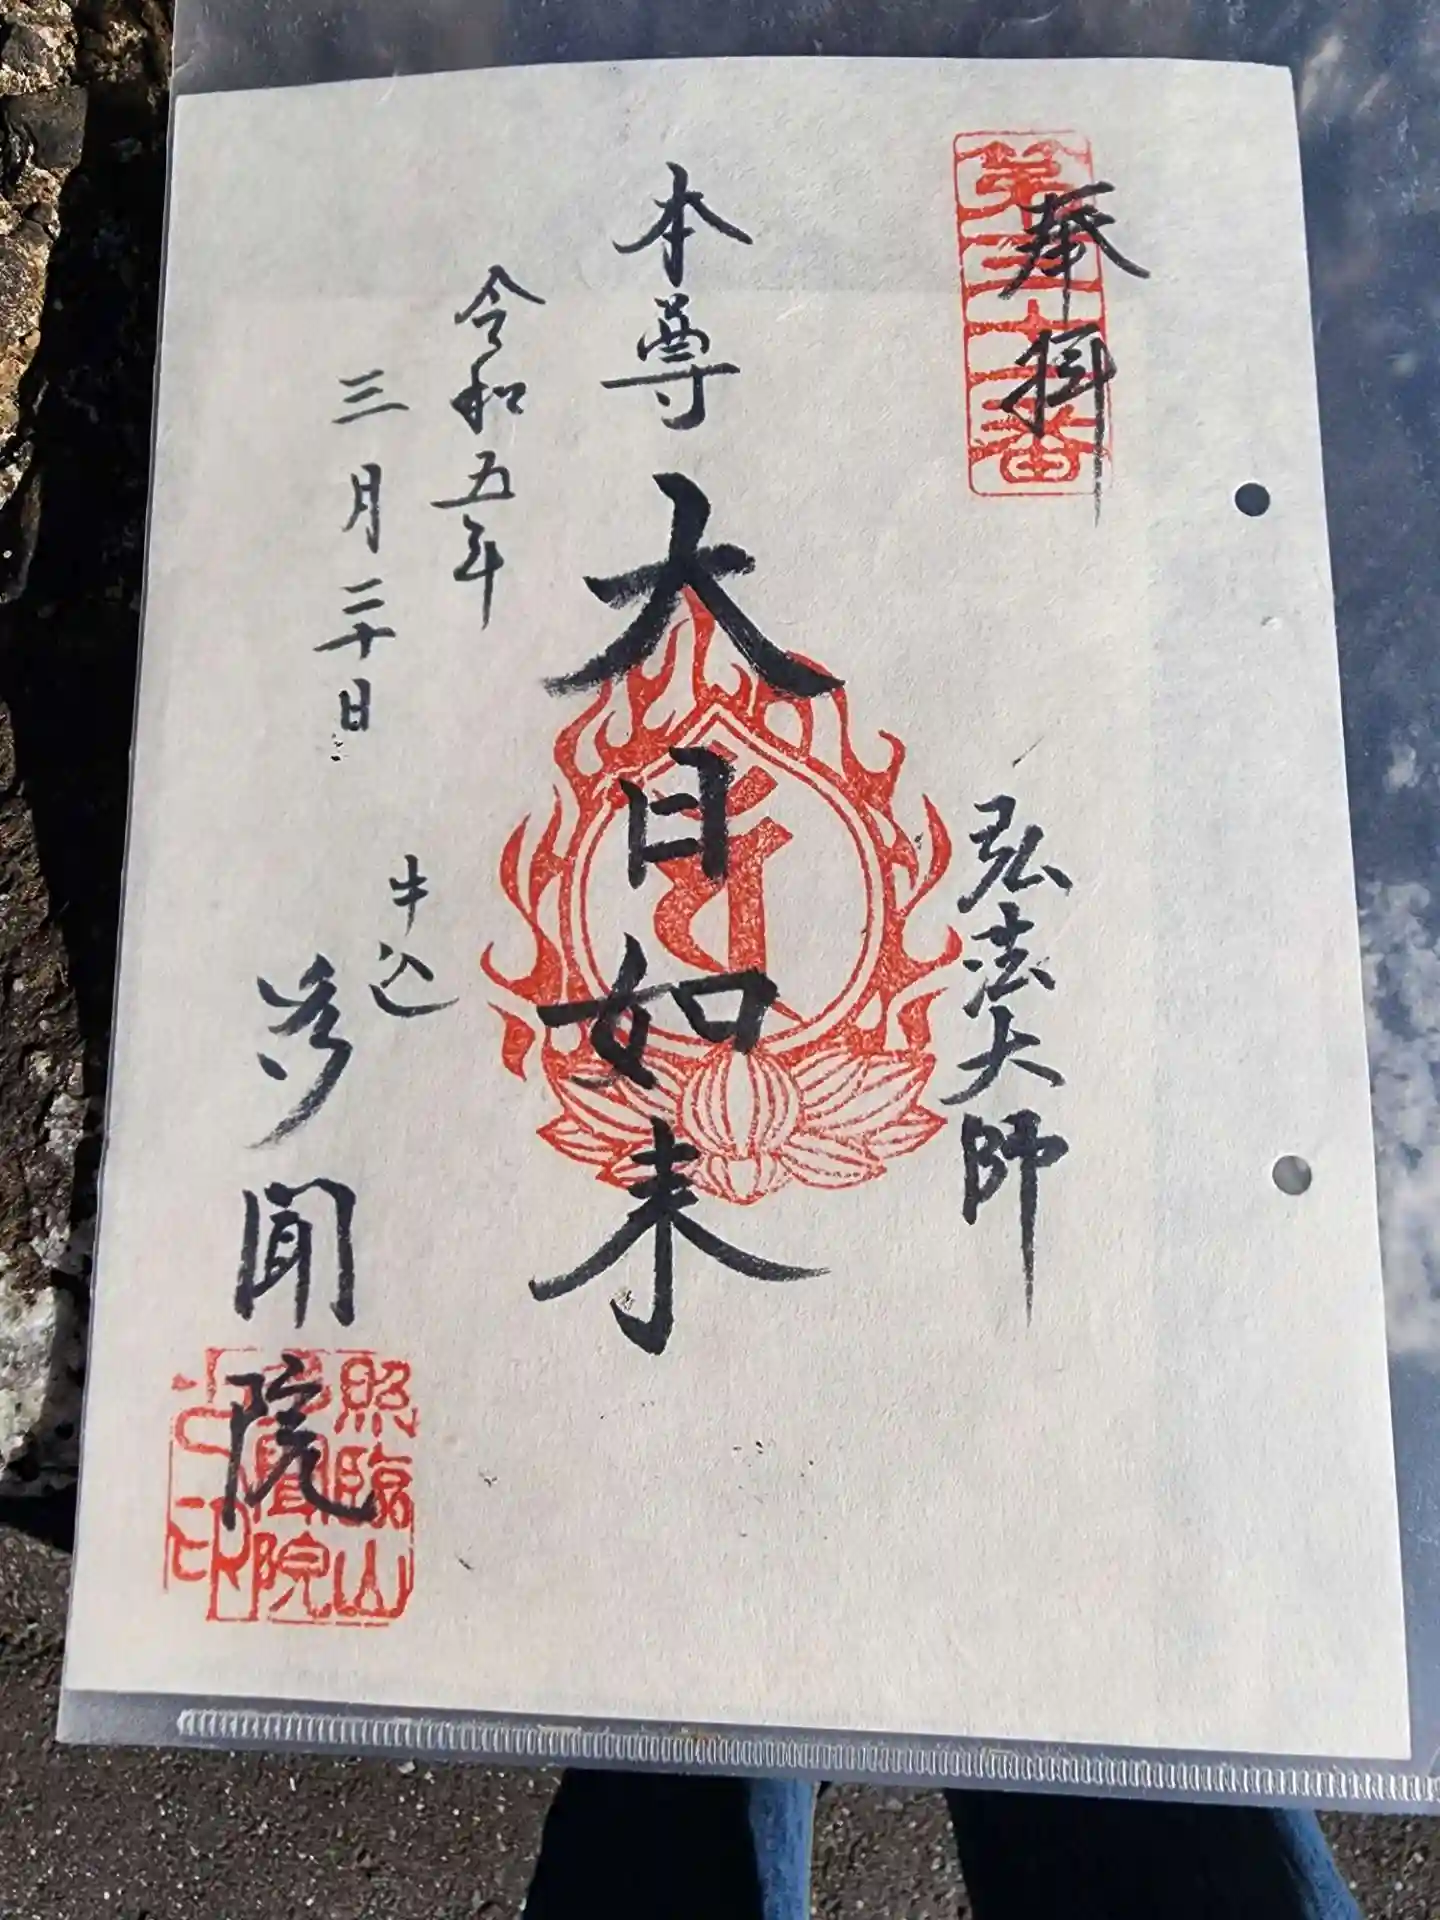 奉拝
第三十一番
弘法大師
本尊 大日如来
令和五年
三月二十日
牛込
多聞院
照臨山
寳院
之印